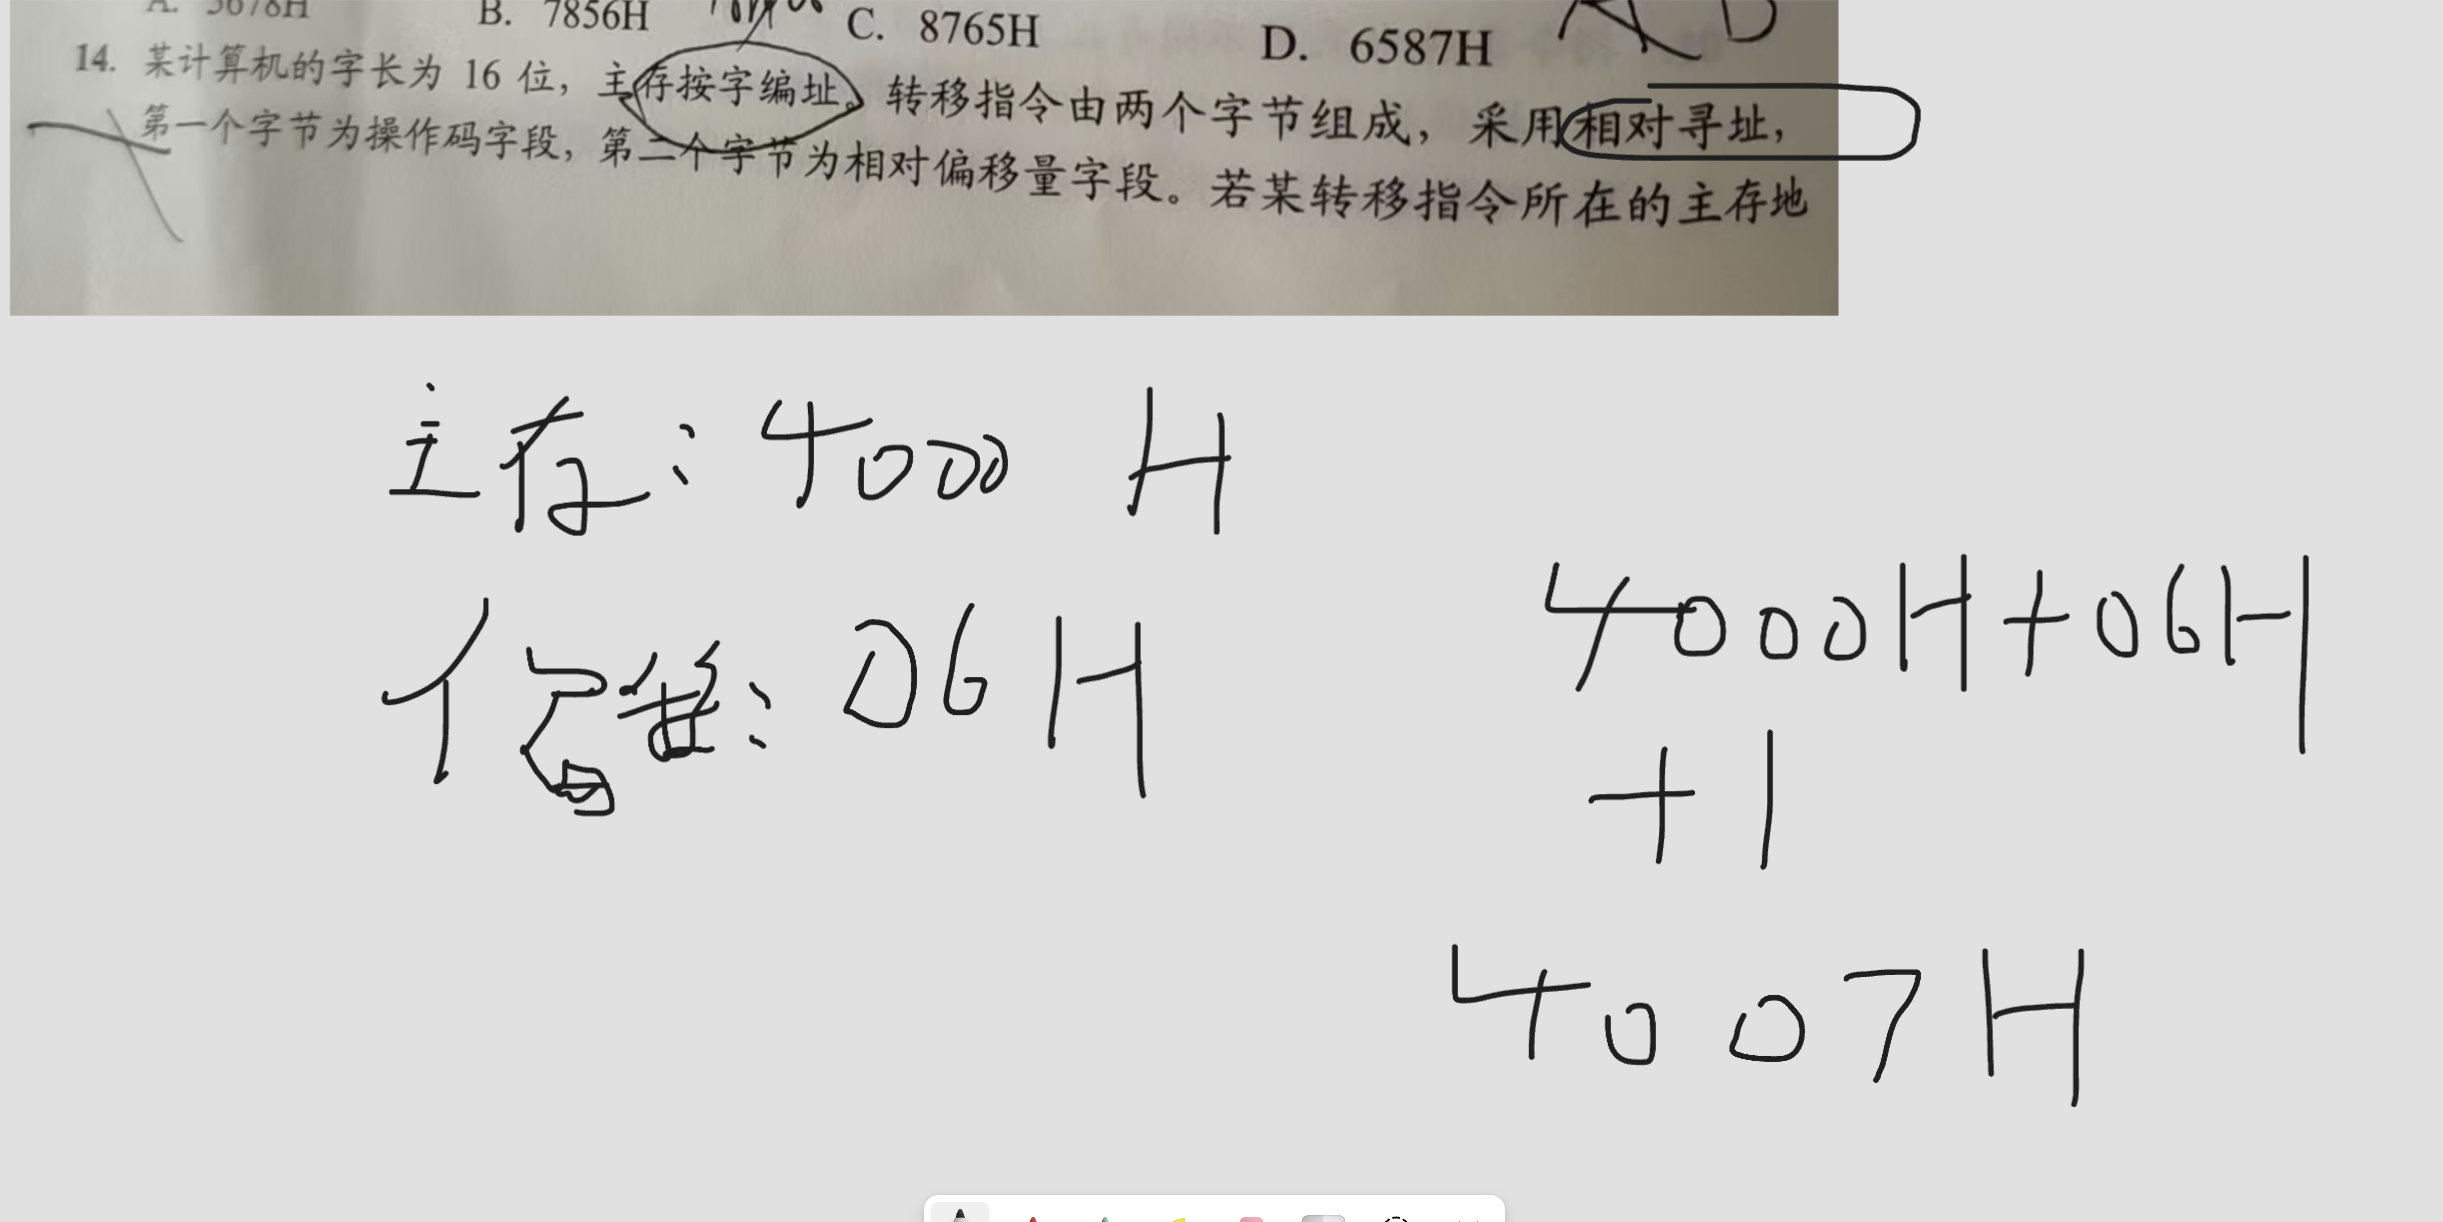 A. 5678H B. 7856H C. 8765H D. 6587H
14. 某计算机的字长为 16 位，主存按字编址。转移指令由两个字节组成，采用相对寻址，
第一个字节为操作码字段，第二个字节为相对偏移量字段。若某转移指令所在的主存地
主存：4000 H
4000H+06H
06H
+1
4007H